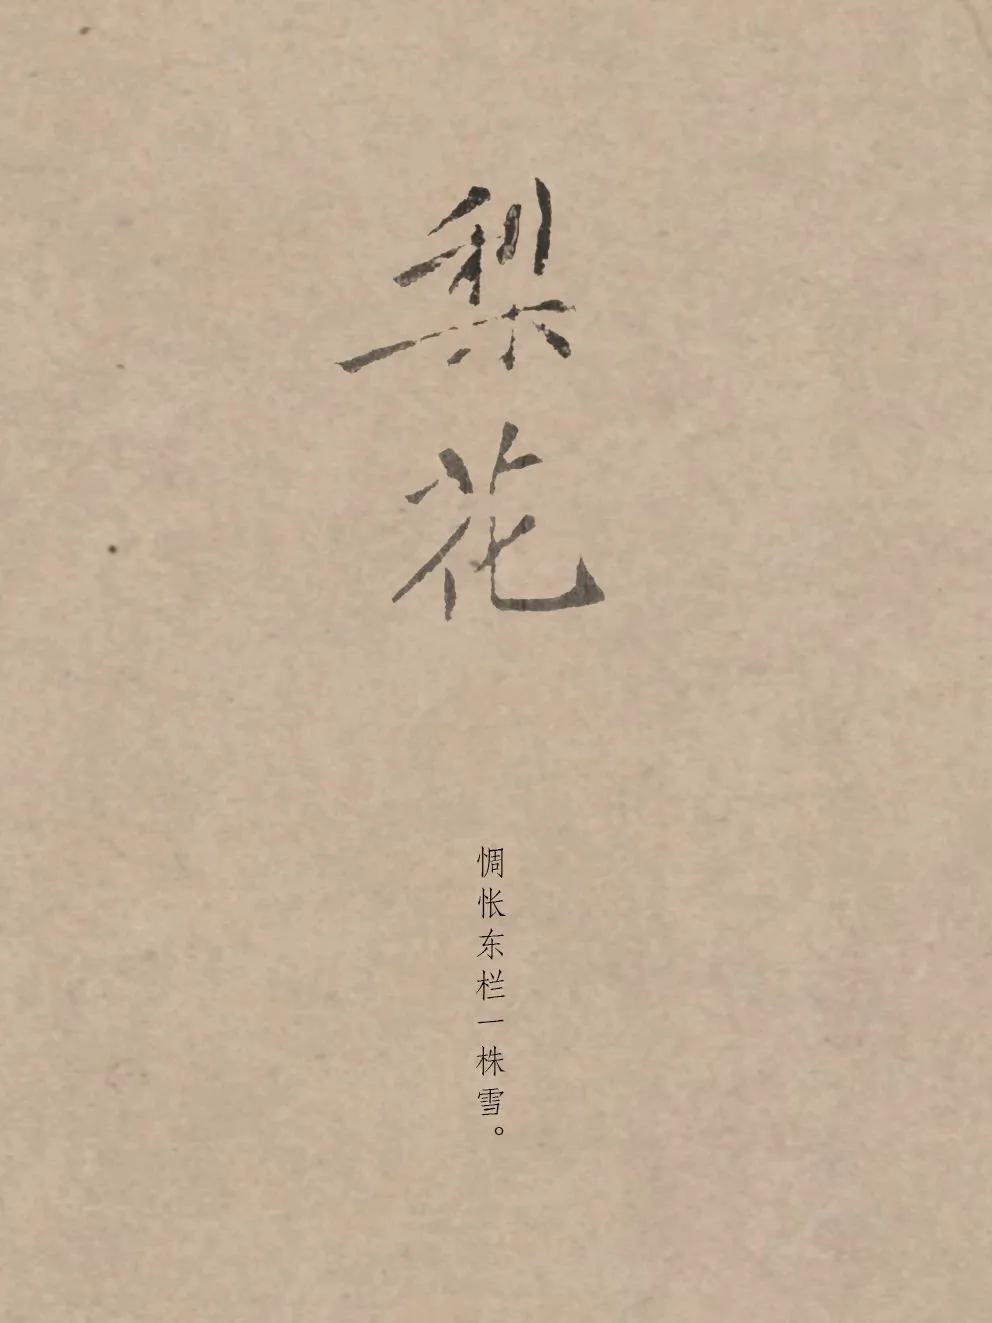 梨花
惆怅东栏一株雪。